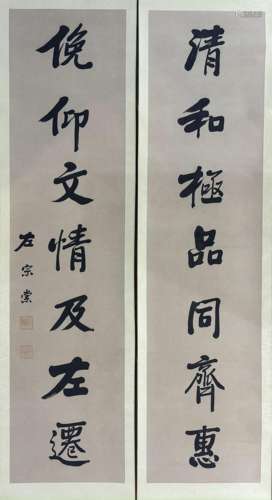 清和極品同齊惠
俛仰文情及左遷
左宗棠